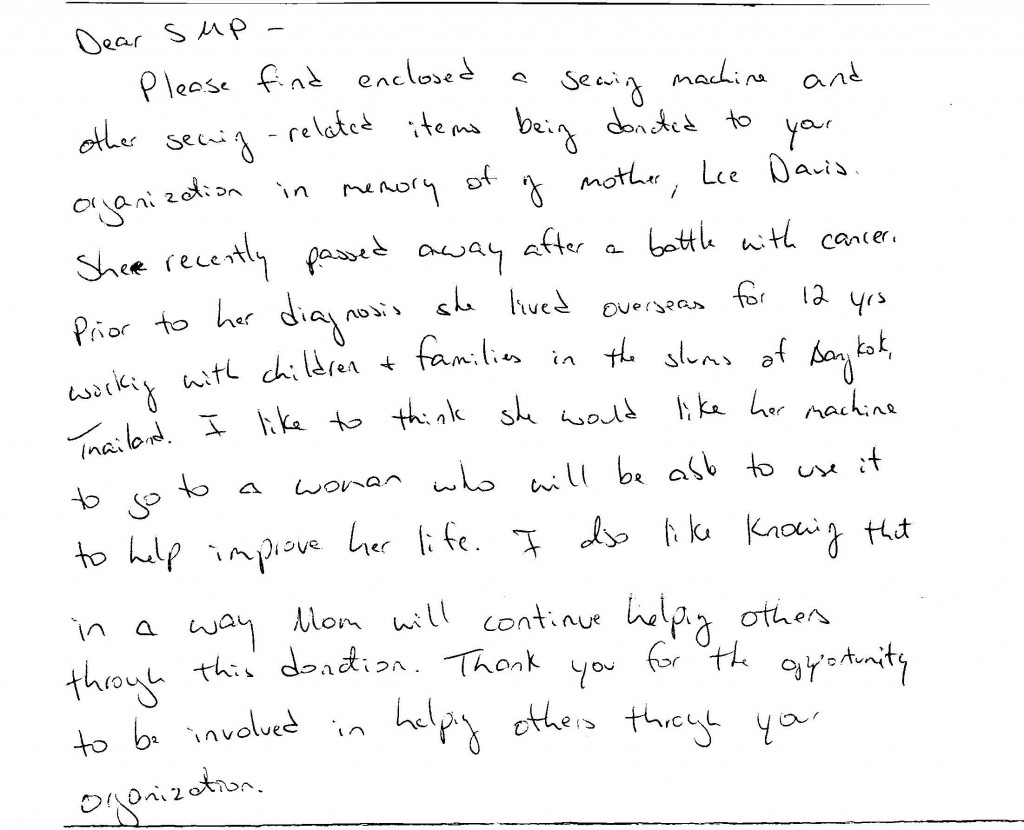 Dear SMP -
Please find enclosed a sewing machine and
other sewing-related items being donated to your
organization in memory of my mother, Lee Davis.
She recently passed away after a battle with cancer.
Prior to her diagnosis she lived overseas for 12 yrs
working with children + families in the slums of Bangkok,
Thailand. I like to think she would like her machine
to go to a woman who will be able to use it
to help improve her life. I also like knowing that
in a way Mom will continue helping others
through this donation. Thank you for the opportunity
to be involved in helping others through your
organization.